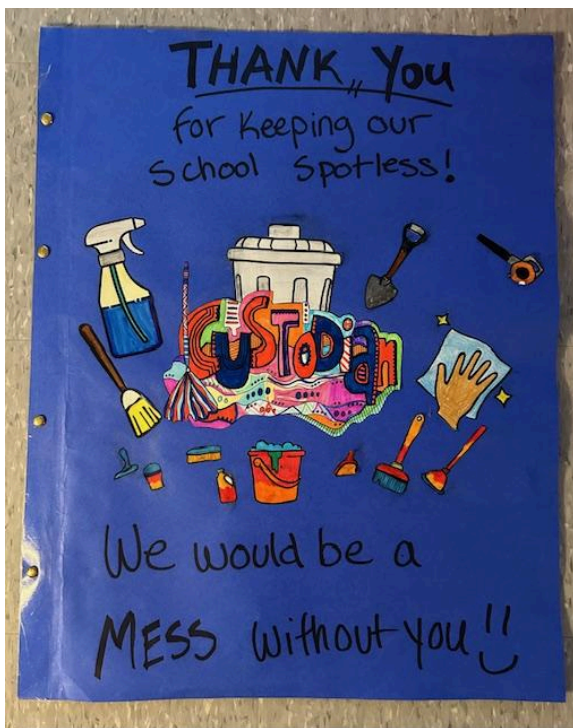 THANK You
for Keeping our
School Spotless!
CUSTODian
We would be a
MESS without you!!